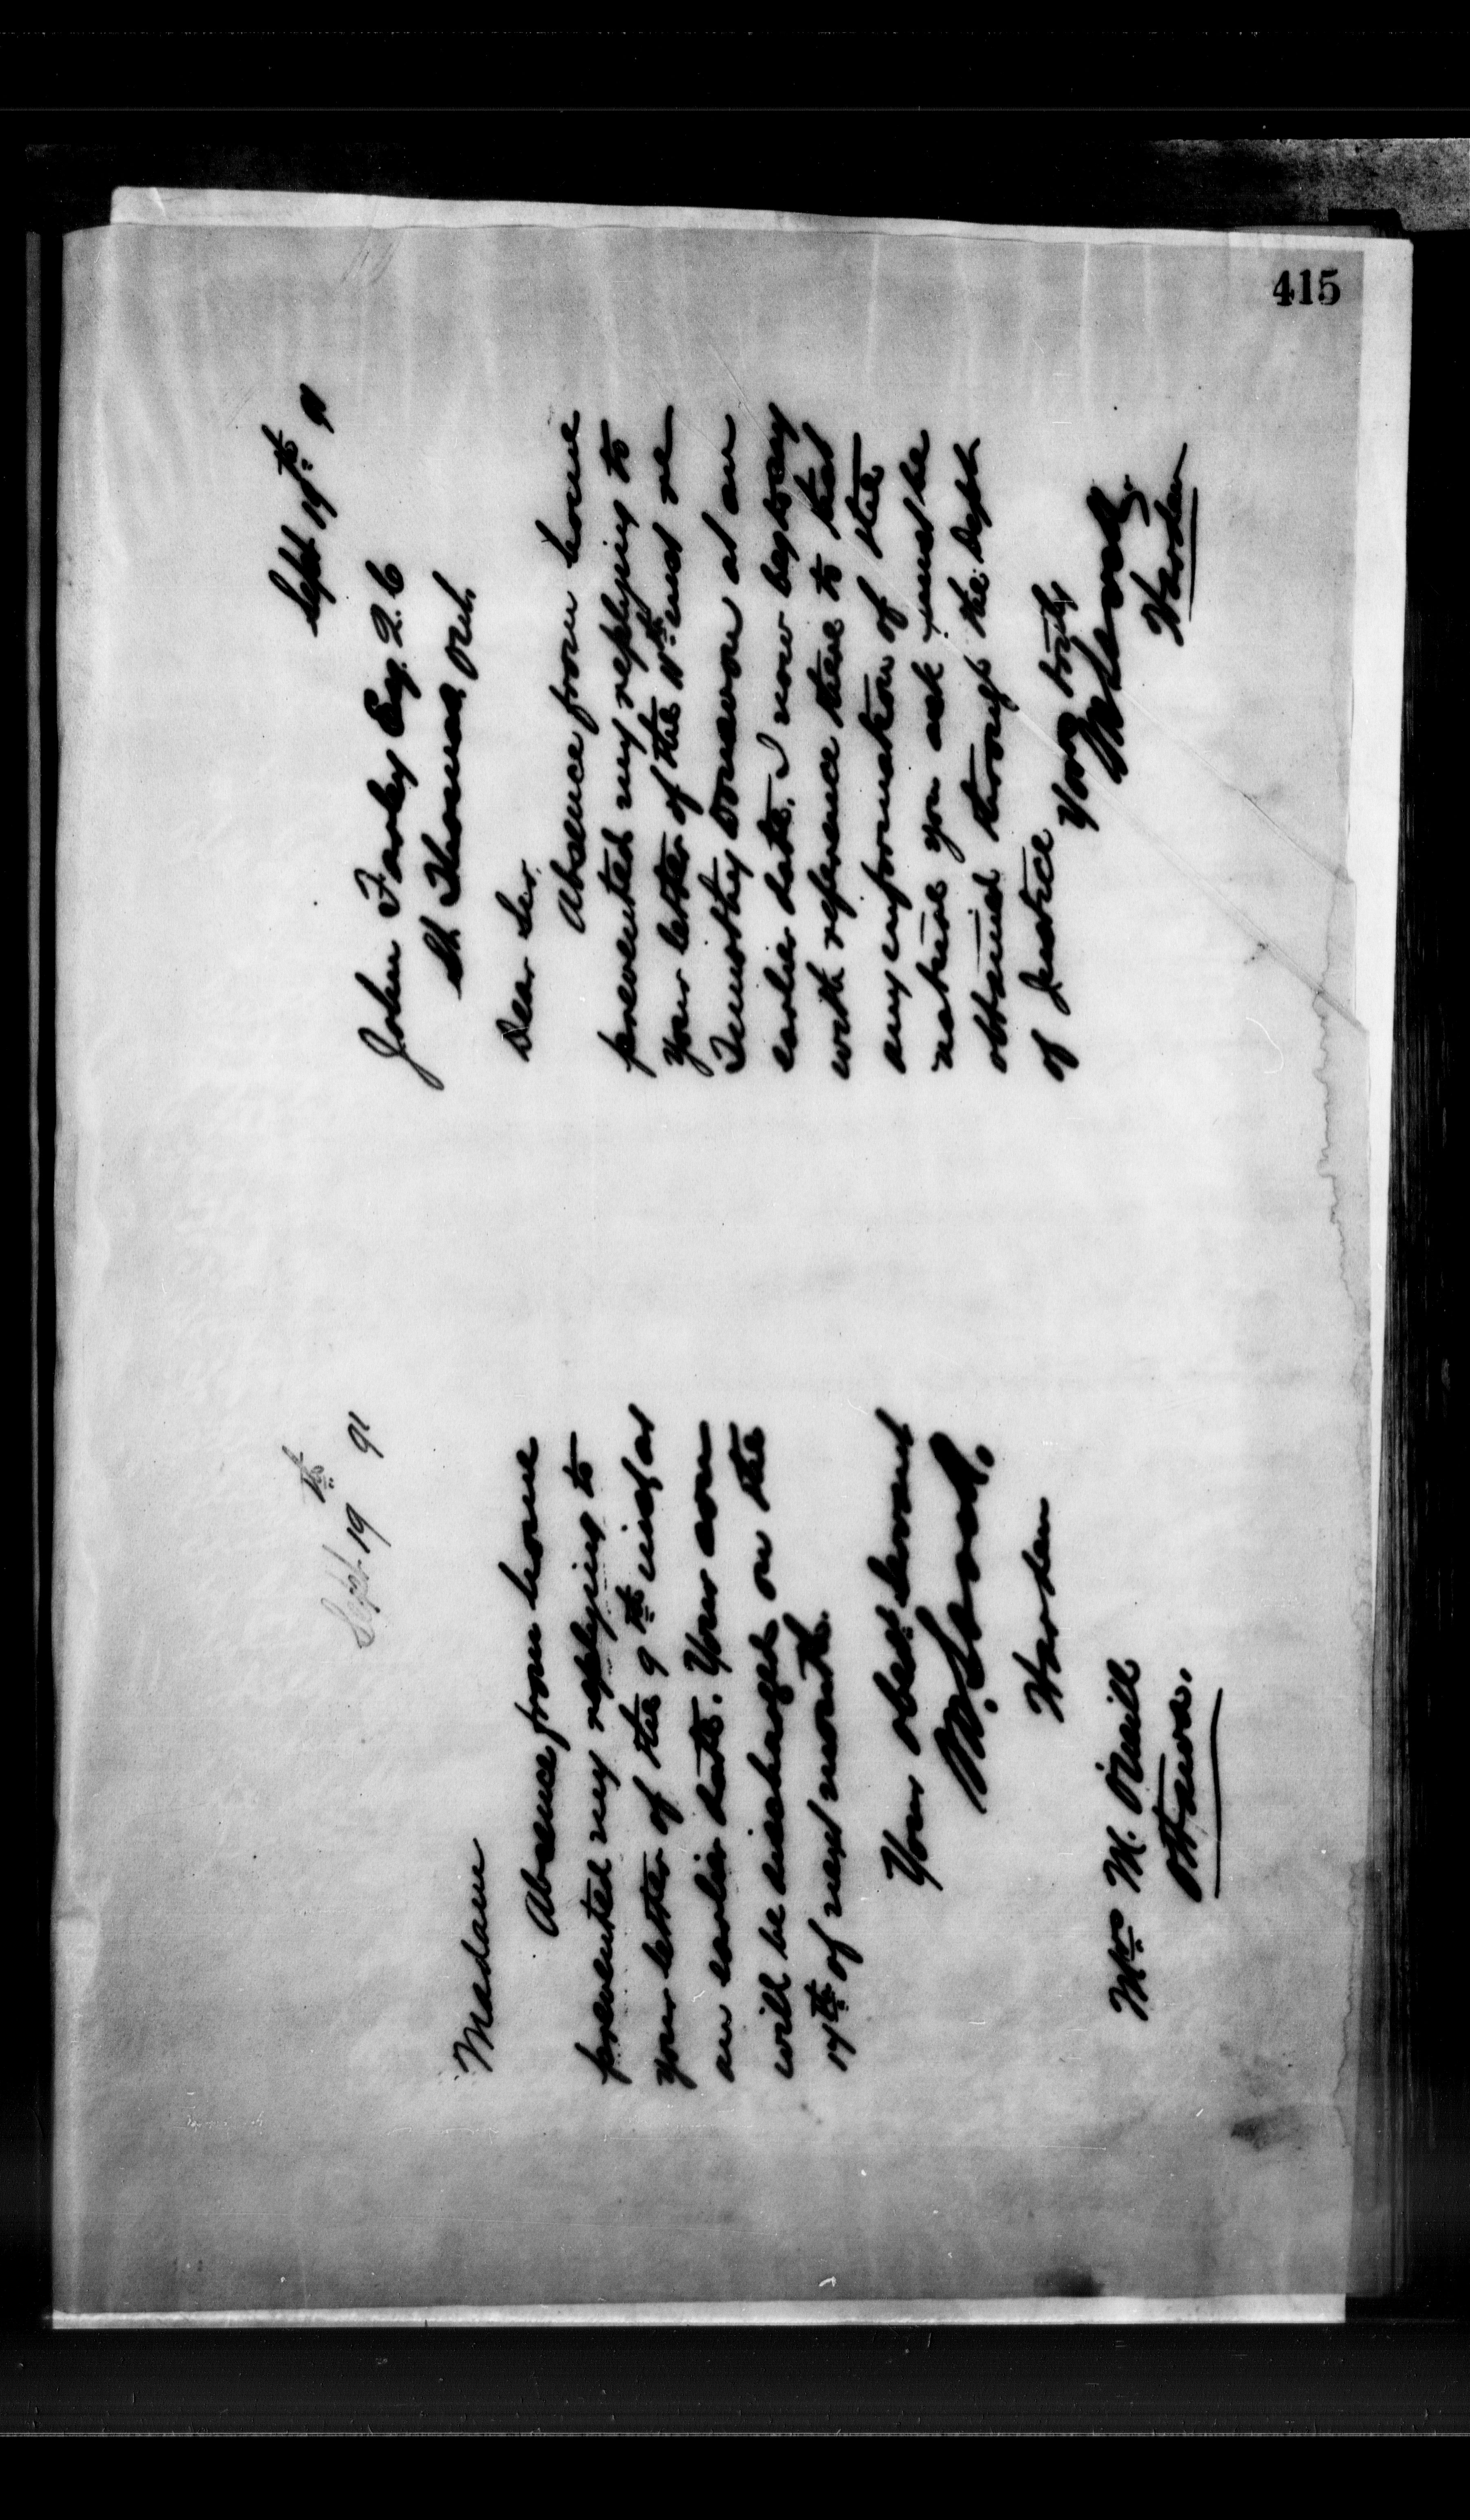 415
Sept 19th 91
Madam
Absence from home
prevented my replying to
your letter of the 9th inst at
an earlier date. Your son
will be discharged on the
17th of next month.
Your obedt servant
M. Lavell.
Warden
Mrs M. O'Neill
Ottawa.
Sept 19th 91
John Farley Esq. Q.C
St. Thomas, Ont.
Dear Sir.
Absence from home
prevented my replying to
your letter of the 11th inst re
Timothy Donovan at an
earlier date. I now beg to say
with reference there to that
any information of the
nature you ask must be
obtained through the Dept
of Justice
Yours truly
M. Lavell
Warden